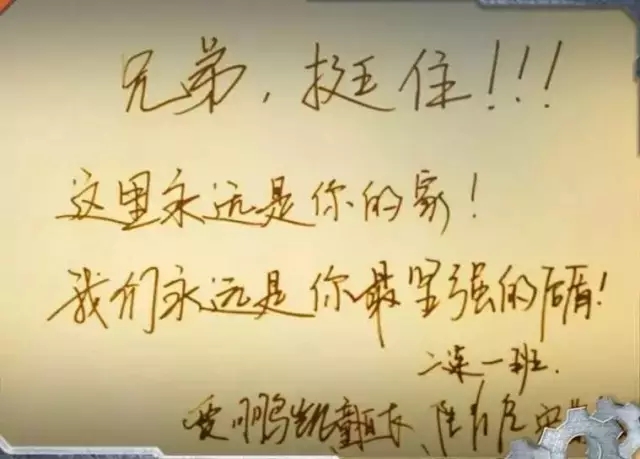 兄弟，挺住！！！
这里永远是你的家！
我们永远是你最坚强的后盾！
二连一班.
鹏凯